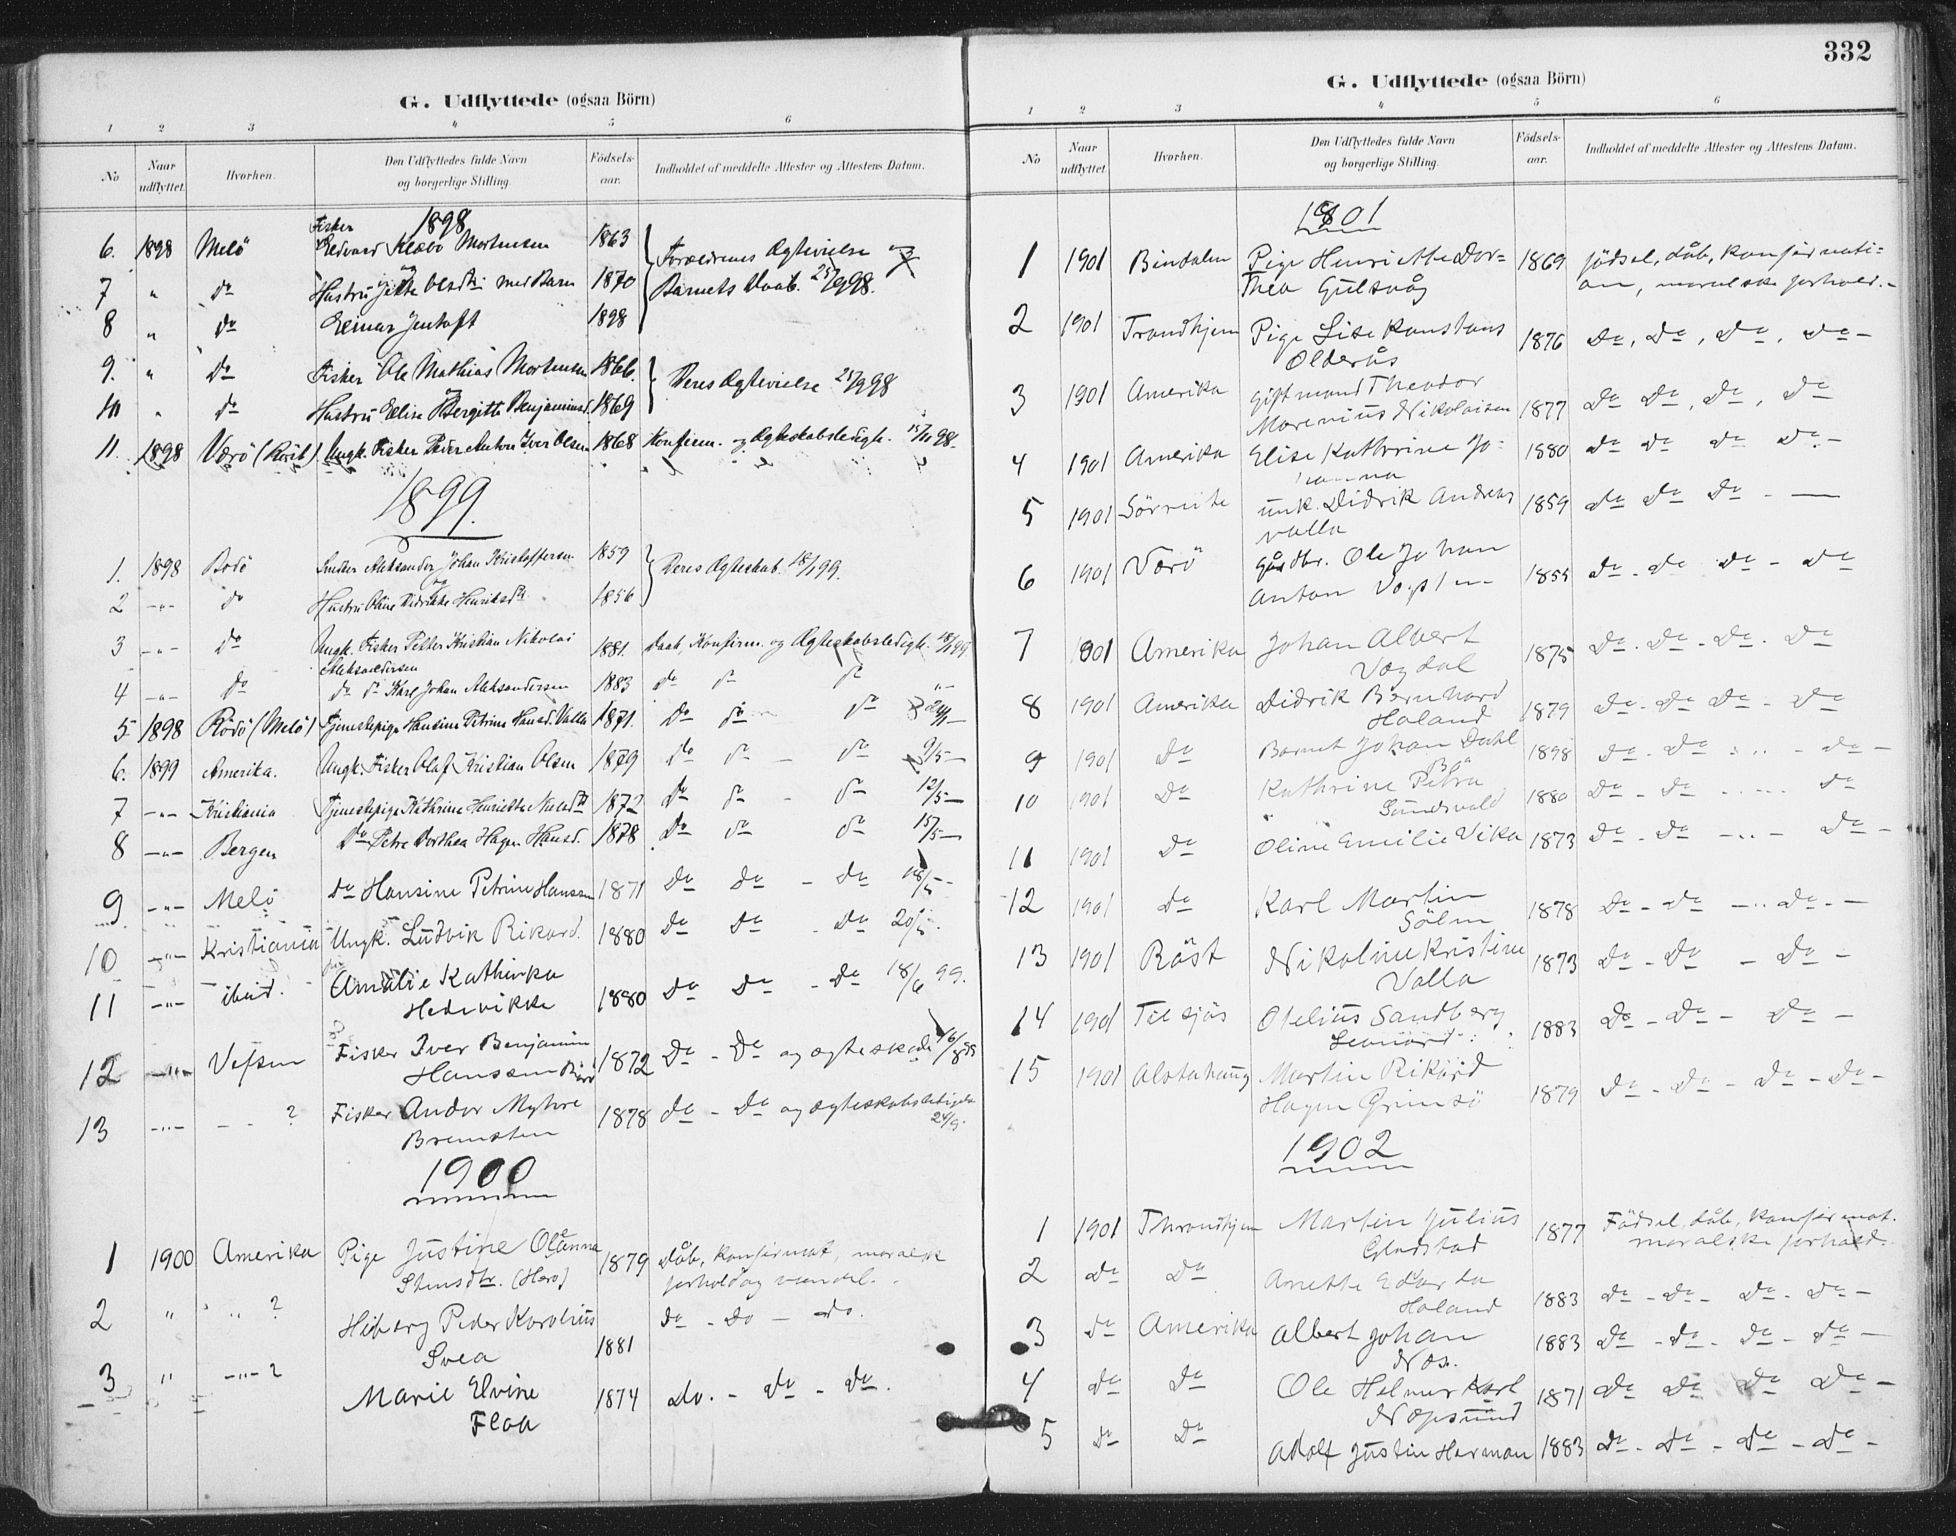 G. Udflyttede (ogsaa Börn)
1 2 3 4 5 6
No Naar udflyttet. Hvorhen. Den Udflyttedes fulde Navn og borgerlige Stilling. Födsels-aar. Indholdet af meddelte Attester og Attestens Datum.
1898
6. 1898 Melö Fisker Edvard Klæbo Mortensen 1863 Forældrenes Ægtevielse og
7 " do Hustru Jitte Olsdtr. med Barn 1870 Barnets Daab. 25/9 98.
8 " do Einar Jentoft 1898
9. " do Fisker Ole Mathias Mortensen 1866. Deres Ægtevielse 25/9 98
10 " do Hustru Elise Bergitte Benjaminsd. 1869
11. 1898 Værö (Röst) Ungk. Fisker Peder Anton Iver Olsen 1868 Konfirm. og Ægteskabsledigh. 15/11 98.
1899.
1. 1898 Bodö Aleksander Johan Kristoffersen 1859 Deres Ægteskab. 18/1 99.
2 -"- do Hustru Oline Didrikke Henriksdtr. 1856
3 -"- do Ungk. Fisker Petter Kristian Nikolai 1881. Daab, Konfirm. og Ægteskabsledigh. 18/1 99
Aleksandersen
4 -"- do do do Karl Johan Aleksandersen 1883 do do do "-
5 1898 Rödö (Melö) Tjenestepige Hansine Petrine Hansd. Valla 1871. do do do
6. 1899 Amerika. Ungk. Fisker Olaf Kristian Olsen 1879 do do - do 9/5 -
7 -"- Kristiania Tjenestepige Kathrine Henriette Nielsdtr 1872 do do - do 12/5 -
8 -"- Bergen do Petra Dorthea Hagen Hansd. 1878 do do do 15/5 -
9 -"- Melö do Hansine Petrine Hansen 1871 do do - do 18/5 -
10 -"- Kristiania Ungk. Ludvik Rikard. 1880 do do - do 20/5.
11 -"- ibid. Amalie Kathinka
Hedevikke 1880 do do - do 18/6 99.
12 -"- Vefsen Fisker Iver Benjamin
Hanssen 1872 do - do og ægteskabs 16/8 99
13 -"- - - ? Fisker Andor Myhre 1878 do - do og ægteskabsledighed
Bremsten 24/9.
1900
1 1900 Amerika Pige Justine Olanna 1879 dåb, konfirmat, moralsk
Stensdtr. (Herö) forhold og vandel.
2 " " ? Hiberg Peder Karolius
Svea 1881 do - do - do.
3 " -"- ? Marie Elvine 1874 do. - do - do.
Floa
332
G. Udflyttede (ogsaa Börn)
1 2 3 4 5 6
No Naar udflyttet. Hvorhen. Den Udflyttedes fulde Navn og borgerlige Stilling. Födsels-aar. Indholdet af meddelte Attester og Attestens Datum.
1901
1 1901 Bindalen Pige Henriette Dor= 1869 födsel, dåb, konfirmati=
thea Gulsvåg on, moralske forhold. -
2 1901 Trondhjem Pige Lise Konstans
Olderås 1876 do, do, do, do -
3 1901 Amerika Giftmand Theodor
Marenius Nikolaisen 1877 do do, do, do
4 1901 Amerika Elise Kathrine Jo= 1880 do do do do. -
hanna
5 1901 Sörreite unk. Didrik Andreas 1859 do do do - -
Valla
6 1901 Værö Gårdbr. Ole Johan
Anton 1855 do - do do - do
7 1901 Amerika Johan Albert
Vægdal 1875 do. do - do. do
8 1901 Amerika Didrik Bernhard
Haland 1879 do - do do - do
9 1901 do Barnet Johan Dahl 1898 do - do - " - do -
Bö
10 1901 do Kathrine Petra
Sundsvold 1880 do - do - - do
11 1901 do Oline Emilie Vika 1873 do - do -"- do -
12 1901 do Karl Martin
Sölen 1878 do - do -"- do. -
13 1901 Röst Nikoline Kristine
Valla 1873 do - do - do -
14 1901 Til sjös Otelius Sandberg
Leonard 1883 do - do - do -
15 1901 Alstahaug Martin Rikard
Hagen Grimsö 1879 do - do - do - do -
1902
1 1901 Throndhjem Martin Julius 1877 Födsel, dåb, konfirmat.
Gladstad moralske forhold.
2 do do Anette Edvarda
Haland 1883 do - do - do - do -
3 do Amerika Albert Johan
Næs. 1883 do - do - do - do -
4 do do Ole Helmer Karl
Næpsund 1871 do do do do -
5 do do Adolf Justin Herman 1883 do - do - do - do -